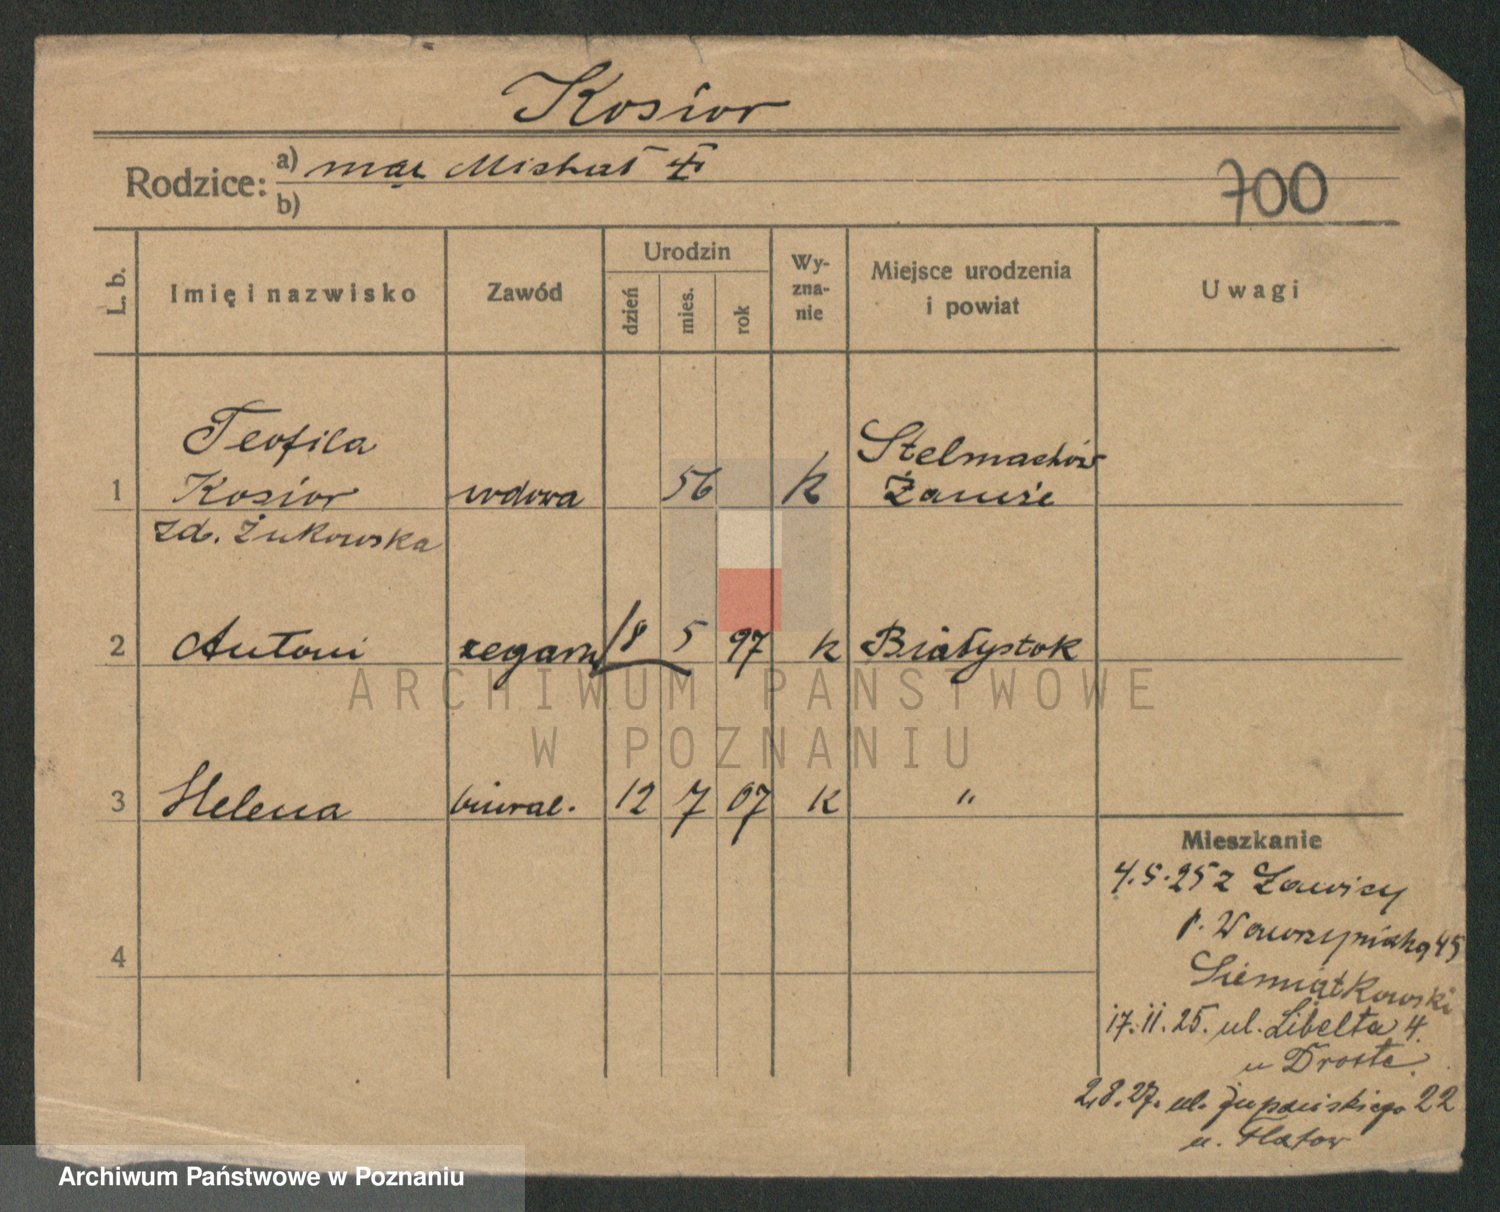 Kosior
Rodzice: a) mąż Michał
b)
700
L. b.
Imię i nazwisko
Zawód
Urodzin
dzień
mies.
rok
Wy-
zna-
nie
Miejsce urodzenia
i powiat
Uwagi
Teofila
1 Kosior wdowa 56 k Stelmachów
zd. Żukowska
2 Antoni zegarm 18 5 97 k Białystok
3 Helena biural. 12 7 07 k "
4
Mieszkanie
4.5.25 z Zawicy
p. Wawrzyniaka 45
Siemiątkowski
17.11.25. ul. Libelta 4.
u Droste.
2.8.27. ul. Żupańskiego 22
u. Flatow
ARCHIWUM PAŃSTWOWE
W POZNANIU
Archiwum Państwowe w Poznaniu